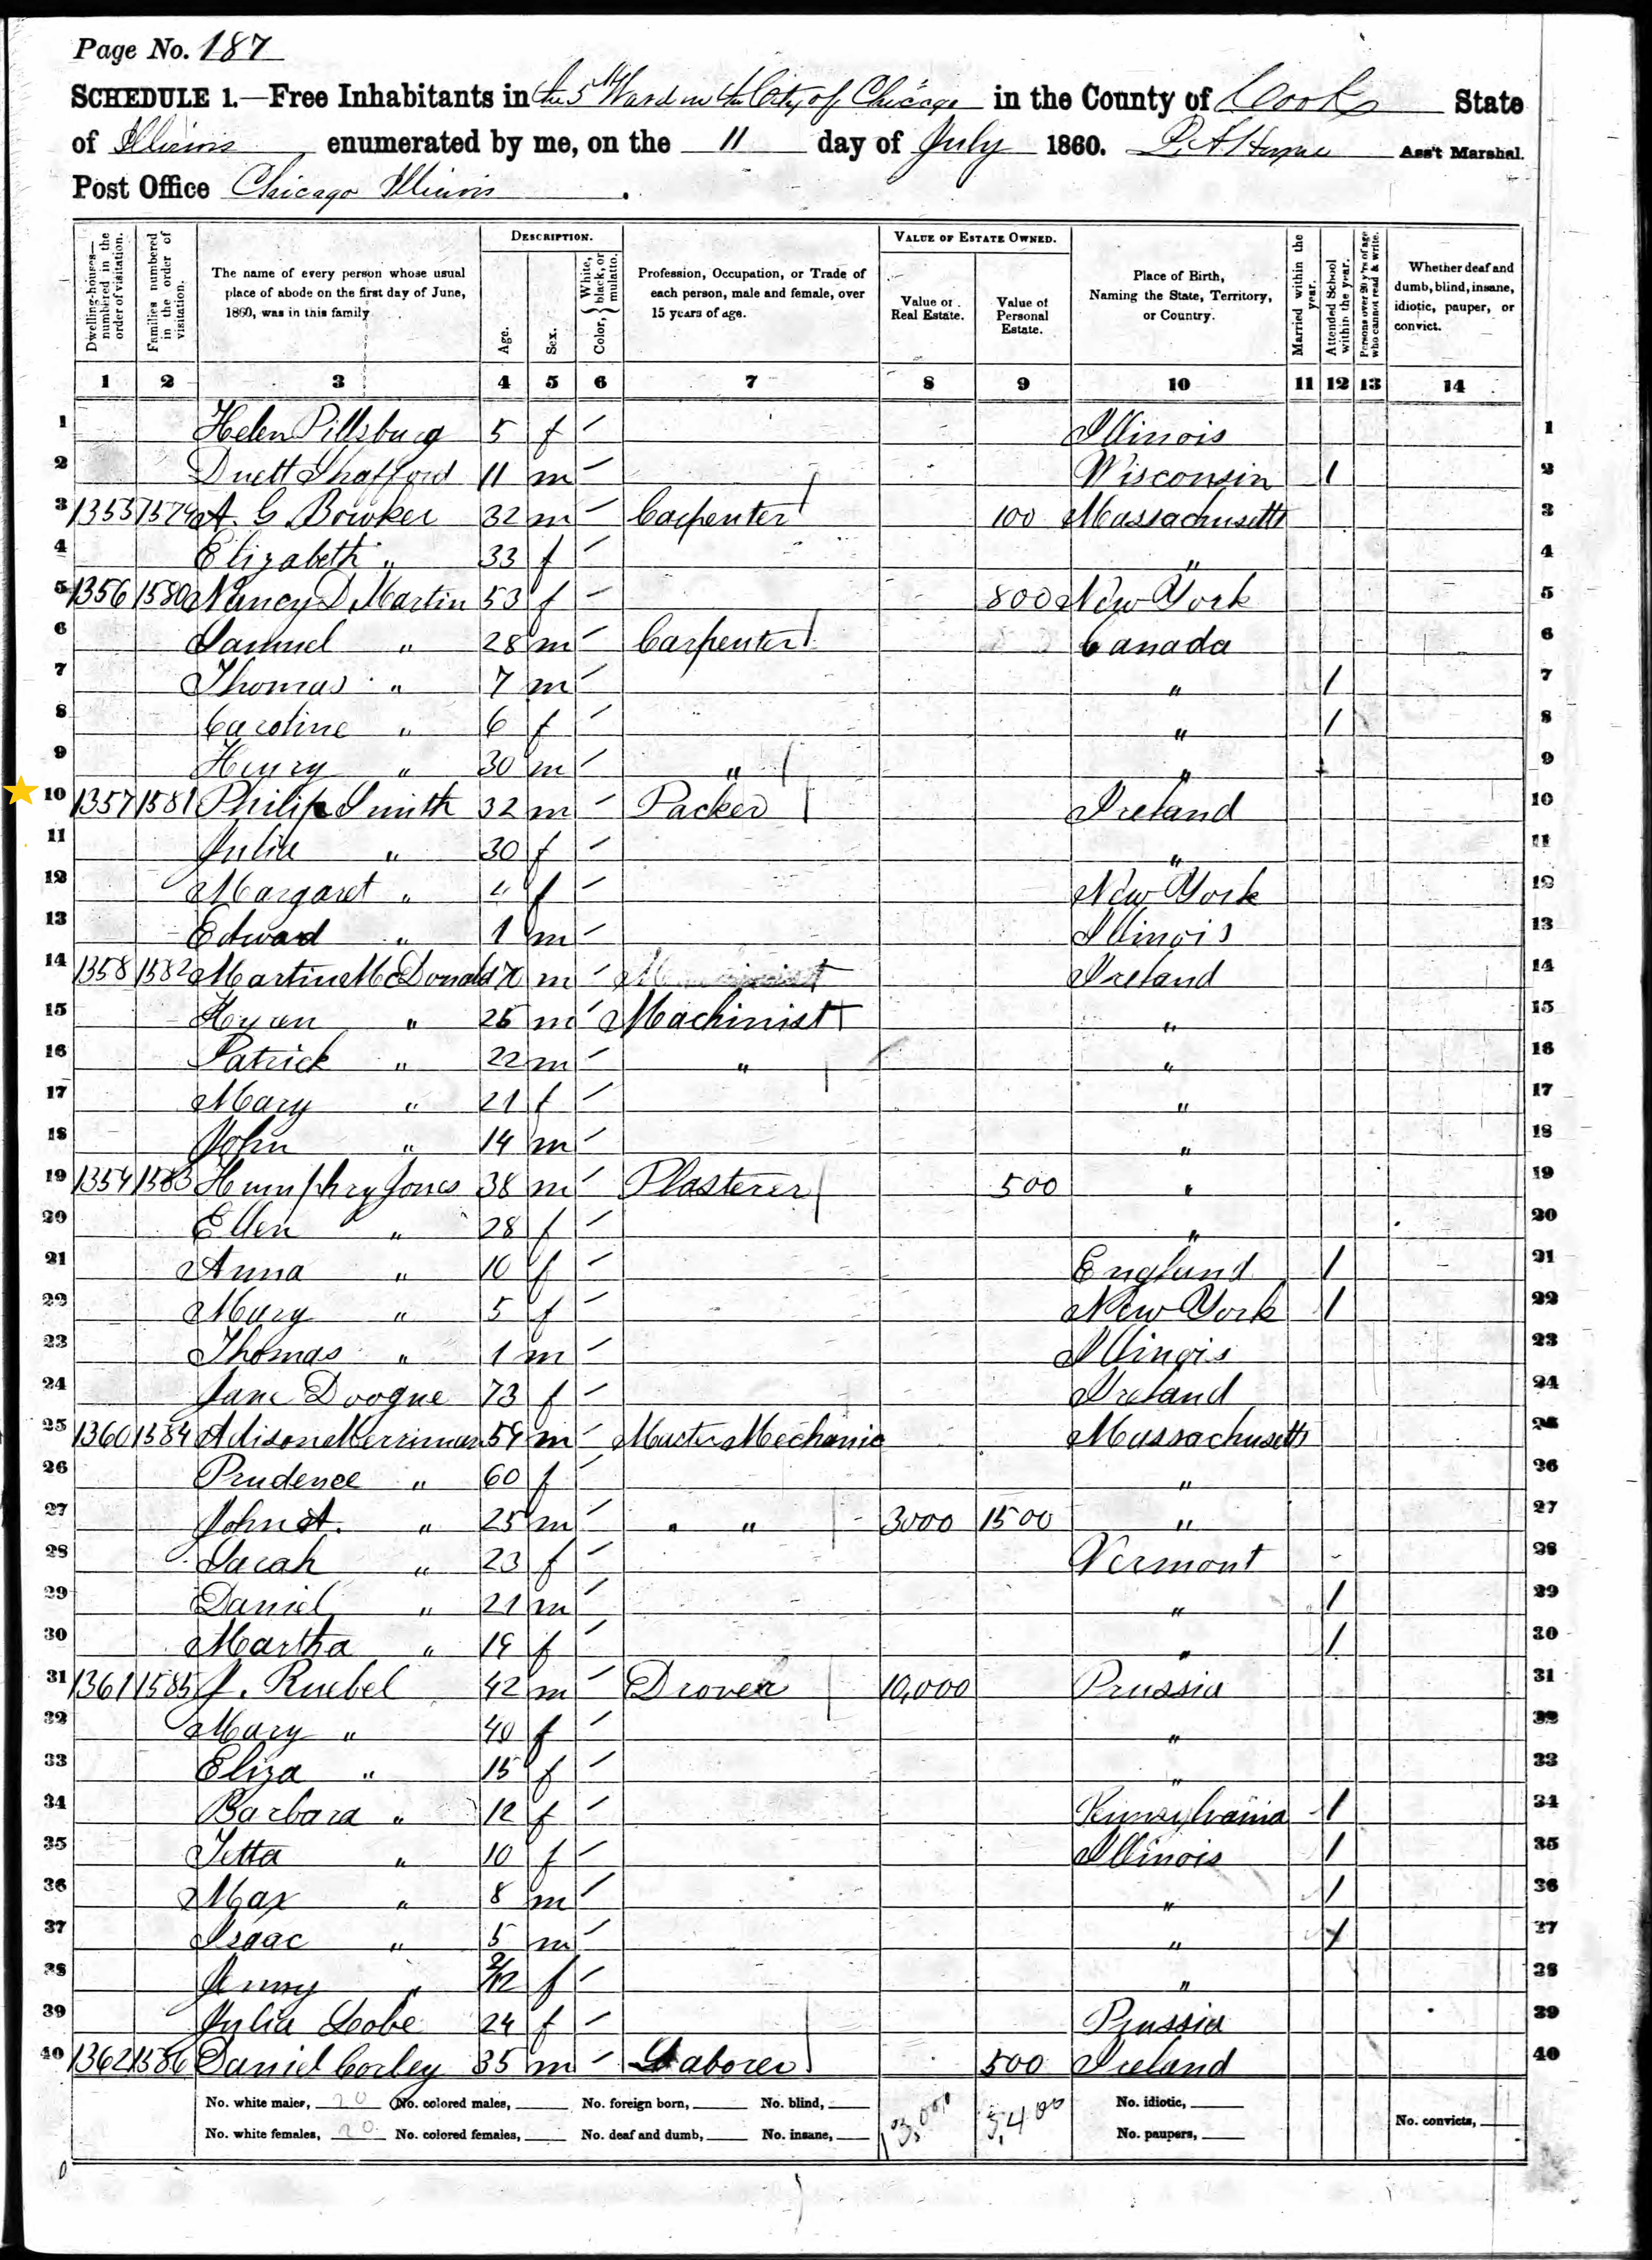 Page No. 187
SCHEDULE 1.—Free Inhabitants in the 5th Ward in the City of Chicago in the County of Cook State
of Illinois enumerated by me, on the 11 day of July 1860. Ass't Marshal.
Post Office Chicago Illinois.
DESCRIPTION. VALUE OF ESTATE OWNED.
Dwelling-houses—numbered in the order of visitation. Families numbered in the order of visitation. The name of every person whose usual place of abode on the first day of June, 1860, was in this family Age. Sex. Color, { White, black, or mulatto. Profession, Occupation, or Trade of each person, male and female, over 15 years of age. Value of Real Estate. Value of Personal Estate. Place of Birth, Naming the State, Territory, or Country. Married within the year. Attended School within the year. Persons over 20 y'rs of age who cannot read & write. Whether deaf and dumb, blind, insane, idiotic, pauper, or convict.
1 2 3 4 5 6 7 8 9 10 11 12 13 14
1 Helen Pillsbury 5 f / Illinois 1
2 Duett Shafford 11 m / Wisconsin / 2
3 1355 1579 A. G. Bowker 32 m / Carpenter 100 Massachusetts 3
4 Elizabeth " 33 f / " 4
5 1356 1580 Nancy D. Martin 53 f / 800 New York 5
6 Samuel " 28 m / Carpenter Canada 6
7 Thomas " 7 m / " / 7
8 Caroline " 6 f / " / 8
9 Henry " 30 m / " " 9
10 1357 1581 Philip Smith 32 m / Packer Ireland 10
11 Julia " 30 f / " 11
12 Margaret " 4 f / New York 12
13 Edward " 1 m / Illinois 13
14 1358 1582 Martin McDonald m / Ireland 14
15 " 25 m / Machinist " 15
16 Patrick " 22 m / " " 16
17 Mary " 21 f / " 17
18 John " 14 m / " 18
19 1354 1583 Humphry Jones 38 m / Plasterer 500 " 19
20 Ellen " 28 f / " 20
21 Anna " 10 f / England / 21
22 Mary " 5 f / New York / 22
23 Thomas " 1 m / Illinois 23
24 Jane Doogue 73 f / Ireland 24
25 1360 1584 Adison Merriman 54 m Master Mechanic Massachusetts 25
26 Prudence " 60 f / " 26
27 John A. " 25 m / " " 3000 1500 " 27
28 Sarah " 23 f / Vermont 28
29 Daniel " 21 m / " / 29
30 Martha " 19 f / " / 30
31 1361 1585 J. Ruebel 42 m / Drover 10,000 Prussia 31
32 Mary " 40 f / " 32
33 Eliza " 15 f / " 33
34 Barbara " 12 f / Pennsylvania / 34
35 Jetta " 10 f / Illinois / 35
36 Max " 8 m / " / 36
37 Isaac " 5 m / " / 37
38 Jenny " f / " 38
39 Julia Lobe 24 f / Prussia 39
40 1362 1586 Daniel Corley 35 m / Laborer 500 Ireland 40
No. white males, 20 No. colored males, No. foreign born, No. blind, 13,000 5,400 No. idiotic,
No. white females, 20 No. colored females, No. deaf and dumb, No. insane, No. paupers, No. convicts,